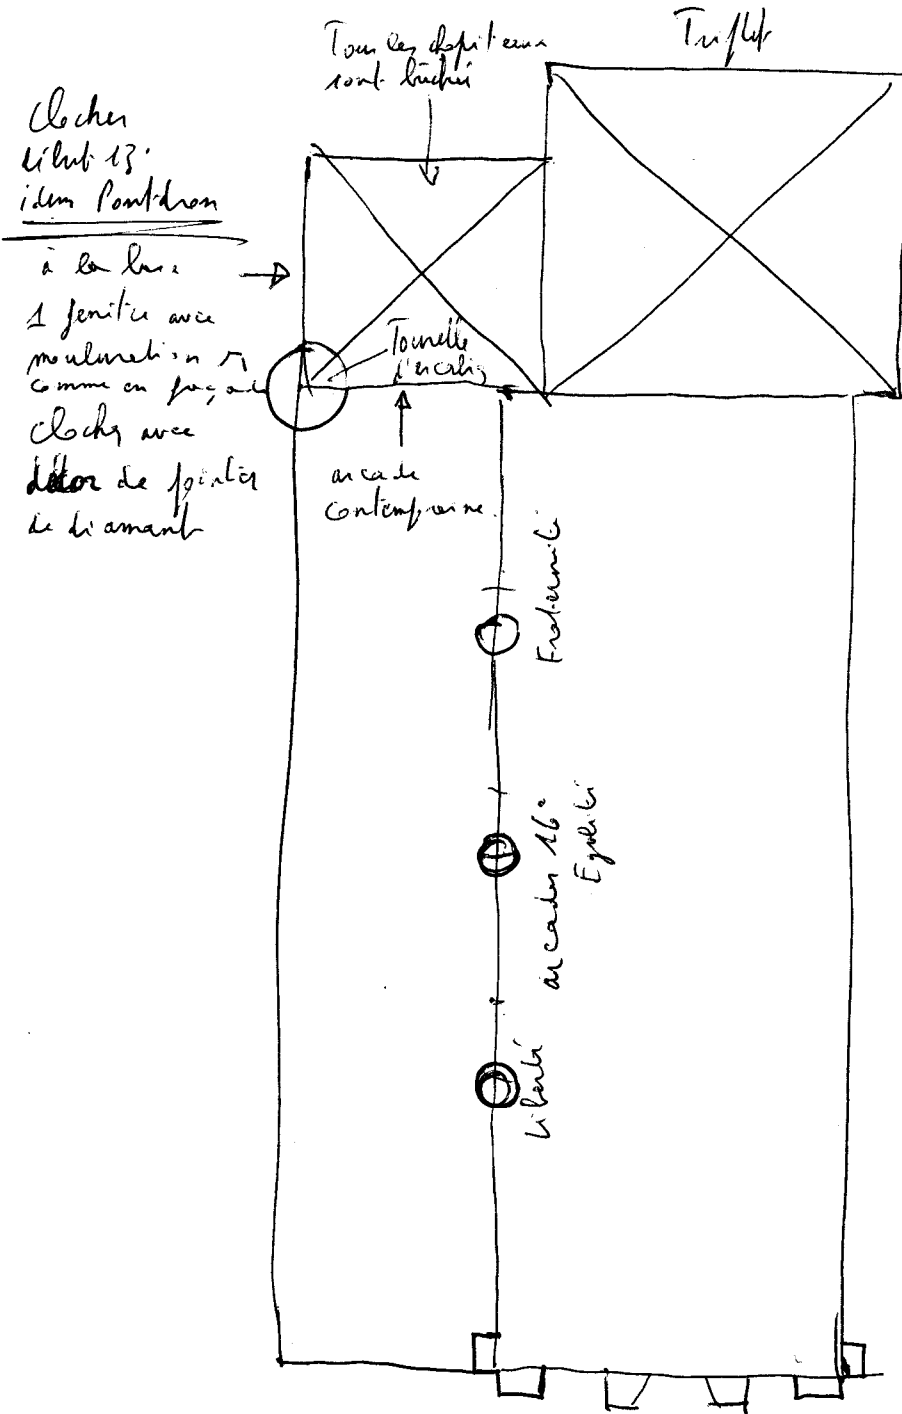 Triplet
Tous les chapiteaux
sont bûchés
Clocher
début 13°
idem Pontdron
à la base
1 fenêtre avec
mouluration
comme en façade
Clocher avec
décor de pointes
de diamant
Tourelle
d'escalier
arcade
contemporaine
Fraternité
arcades 16°
Egalité
Liberté